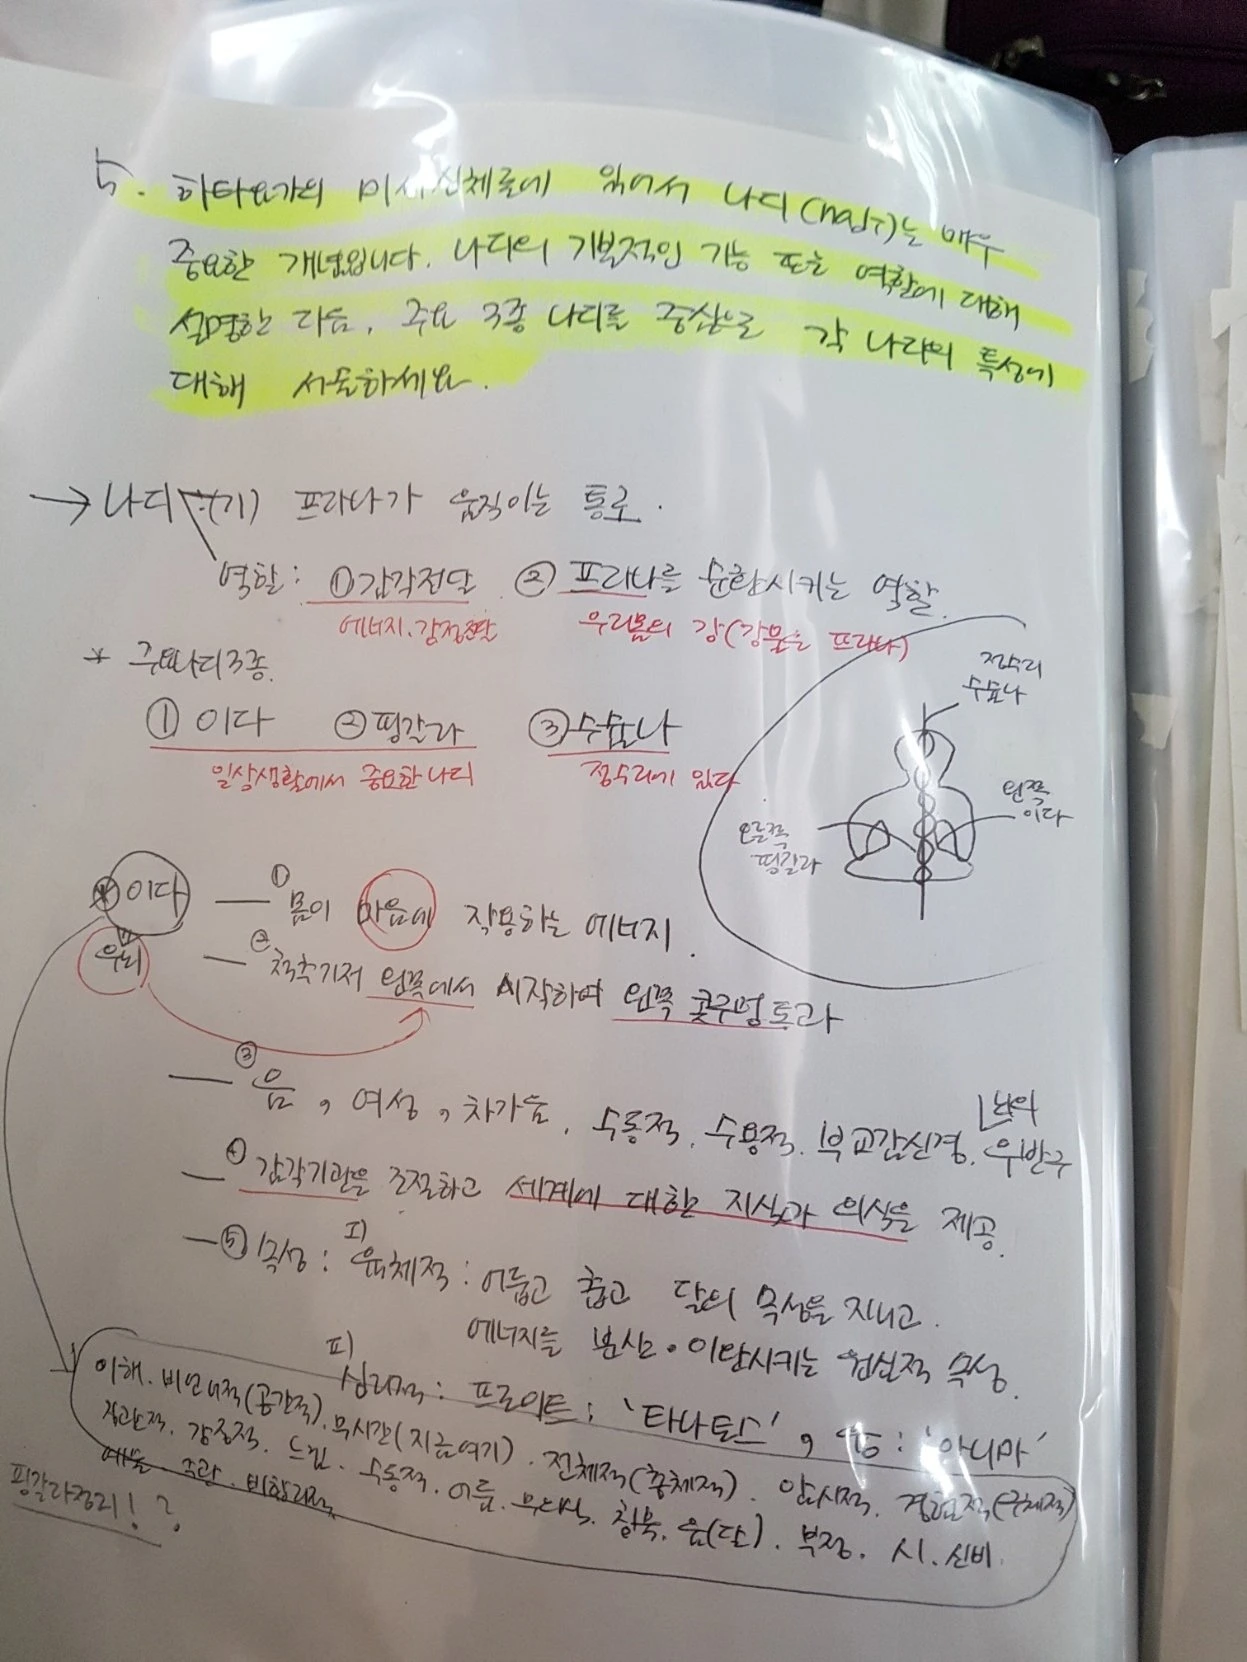 5. 하타요가의 미세신체론에 있어서 나디(nadi)는 매우
중요한 개념입니다. 나디의 기본적인 기능 또는 역할에 대해
설명한 다음, 주요 3종 나디를 중심으로 각 나디의 특성에
대해 서술하세요.
→ 나디 (기) 프라나가 움직이는 통로.
역할: ① 감각전달 ② 프라나를 순환시키는 역할.
에너지.감정전달 우리몸의 강(강물은 프라나)
* 주요나디3종.
① 이다 ② 핑갈라 ③ 수슘나
일상생활에서 중요한 나디 정수리에 있다
정수리
수슘나
왼쪽
이다
오른쪽
핑갈라
이다 — ① 몸이 마음에 작용하는 에너지.
우뇌 — ② 척추기저 왼쪽에서 시작하여 왼쪽 콧구멍통과
— ③ 음, 여성, 차가움, 수동적. 수용적. 부교감신경. 뇌의 우반구
— ④ 감각기관을 조절하고 세계에 대한 지식과 의식을 제공.
— ⑤ 속성: I) 육체적: 어둡고 춥고 달의 속성을 지니고.
에너지를 분산·이완시키는 원심적 속성.
II) 심리적: 프로이트: '타나토스', 융: '아니마'
이해. 비언어적(공간적). 무시간(지금여기). 전체적(총체적). 암시적. 경험적(구체적)
직관적. 감정적. 느낌. 수동적. 어둠. 무의식. 음(달). 부정. 시. 신비.
예술. 주관. 비합리적
핑갈라정리! ?